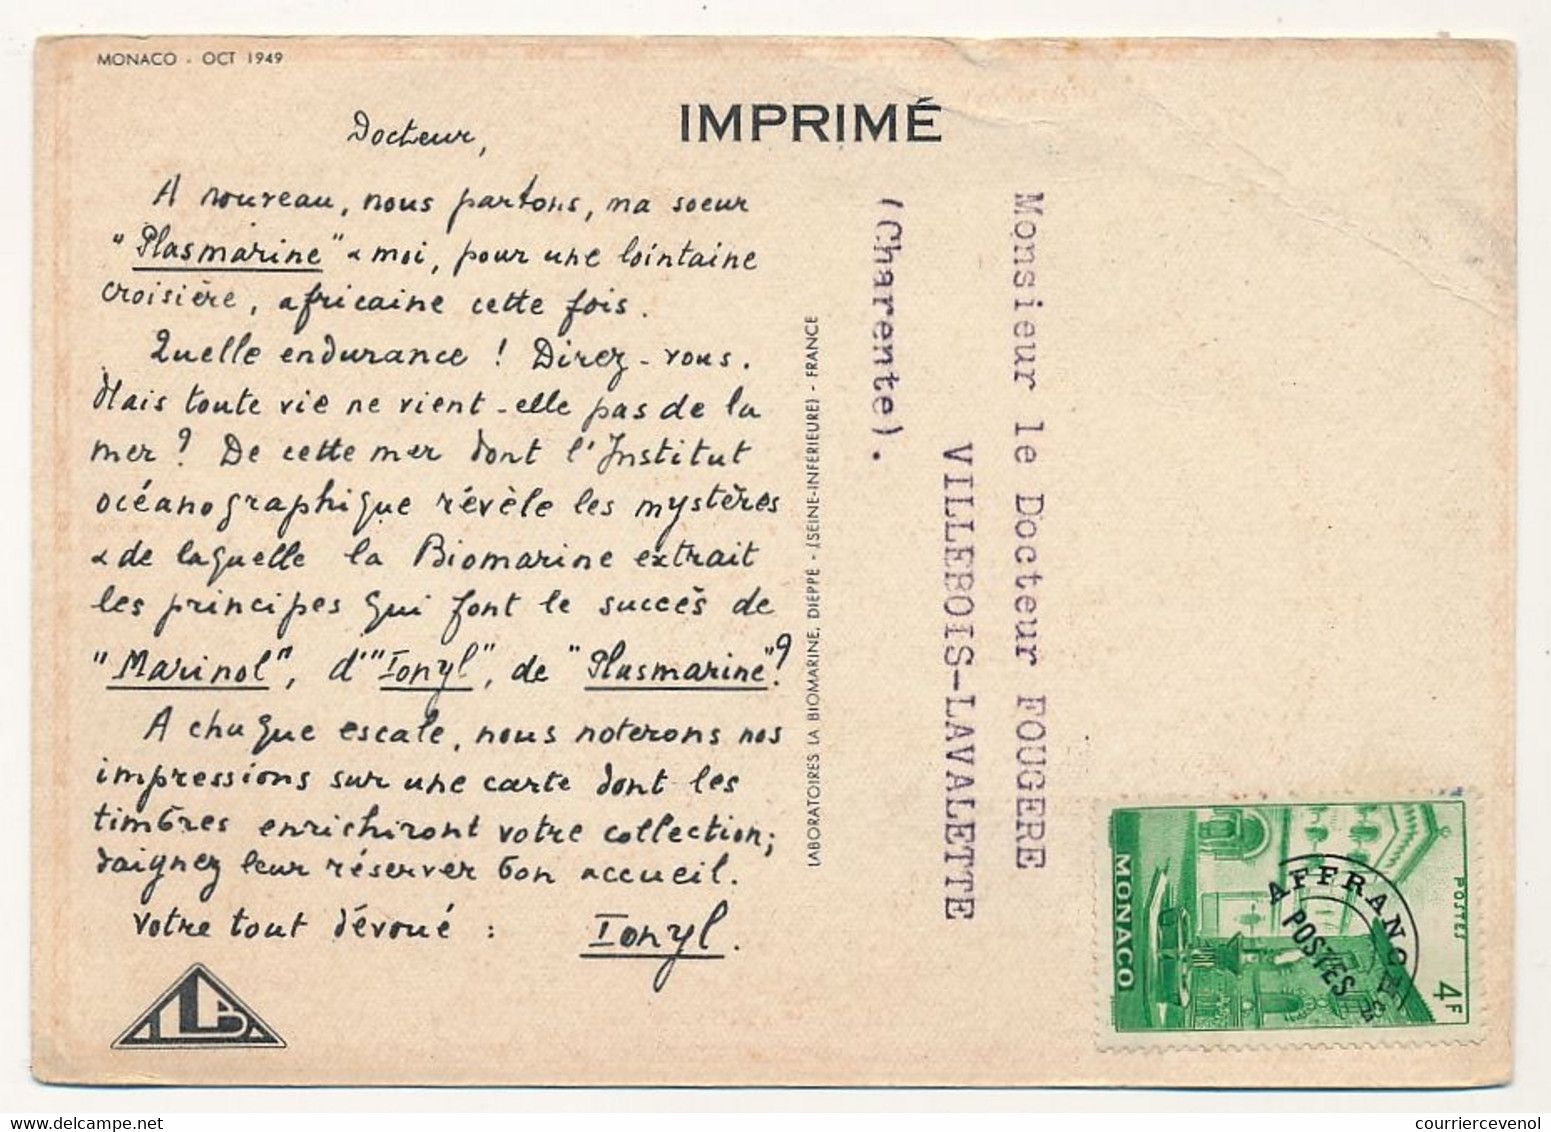 MONACO - OCT 1949
IMPRIMÉ
Docteur,
A nouveau, nous partons, ma soeur
"Plasmarine" & moi, pour une lointaine
croisière, africaine cette fois.
Quelle endurance ! Direz-vous.
Mais toute vie ne vient-elle pas de la
mer ? De cette mer dont l'Institut
océanographique révèle les mystères
& de laquelle la Biomarine extrait
les principes qui font le succès de
"Marinol", d'"Ionyl", de "Plasmarine" ?
A chaque escale, nous noterons nos
impressions sur une carte dont les
timbres enrichiront votre collection ;
daignez leur réserver bon accueil.
Votre tout dévoué : Ionyl.
LABORATOIRES LA BIOMARINE, DIEPPE - (SEINE-INFERIEURE) - FRANCE
Monsieur le Docteur FOUGERE
VILLEBOIS-LAVALETTE
(Charente).
POSTES
4F
MONACO
AFFRANCHts
POSTES
LLB
courriercevenol